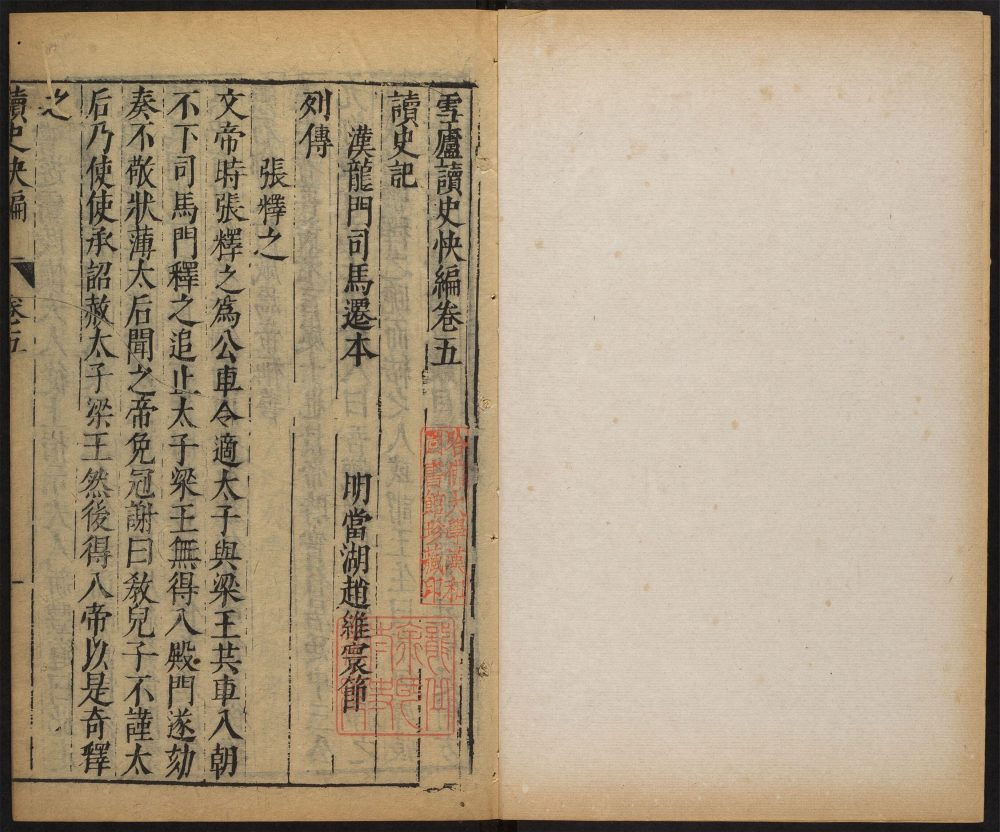 雪廬讀史快編卷五
讀史記
漢龍門司馬遷本 明當湖趙維寰節
列傳
張釋之
文帝時張釋之爲公車令適太子與梁王共車入朝
不下司馬門釋之追止太子梁王無得入殿門遂劾
奏不敬狀薄太后聞之帝免冠謝曰敎兒子不謹太
后乃使使承詔赦太子梁王然後得入帝以是奇釋
之
讀史快編 卷五 一
哈佛大學漢和
圖書館珍藏印